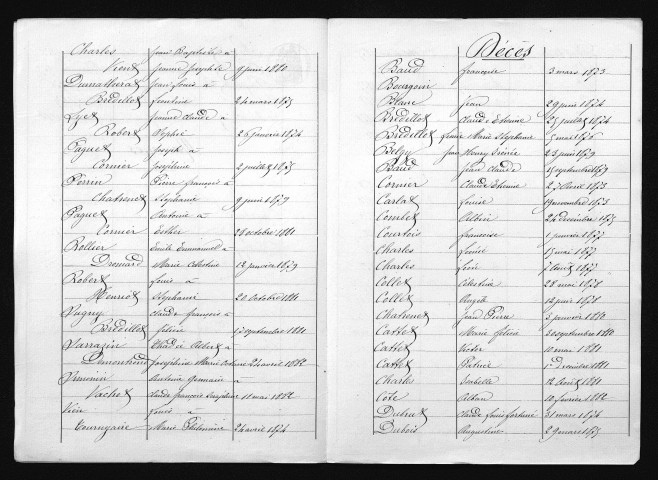 Charles Jean Baptiste à
Vient Jeanne Josephte 9 juin 1880
Jean Louis à
Bredillet Leontine 24 mars 1875
Lyet Jeanne Claude à
Robert Sophie 26 janvier 1874
Paguet Joseph à
Cornier Joséphine 2 juillet 1875
Perrin Pierre françois à
Chatenet Stéphanie 9 juin 1879
Paguet Antoine à
Cornier Esther 28 octobre 1881
Rollier Emile Emmanuel à
Dromard Marie Celestine 12 janvier 1879
Robert Louis à
Henriot Stéphanie 20 octobre 1881
Pugny Claude françois à
Bredillet félicie 13 septembre 1881
Sarrazin Albert à
Joséphine Marie 24 avril 1882
Germain à
Vachet Claude françois 18 mai 1882
Louis à
Tournyaire Marie Philomène 24 avril 1874
Décès
Baud françoise 3 mars 1873
Bourgoin
Blanc Jean 29 juin 1874
Bredillet Claude Etienne 25 juillet 1874
Bredillet Marie Stéphanie 5 mai 1876
Jean Henry 23 juin 1879
Baud Jean Claude 15 septembre 1879
Cornier Claude Etienne 27 Avril 1873
Carlat Louise 19 novembre 1873
Combet Albin 24 Décembre 1875
Courtois françoise 1 janvier 1877
Charles 15 mai 1877
Charles 7 Août 1877
Collet Celestine 28 mai 1878
Collet 12 juin 1878
Chatenet Jean Pierre 3 janvier 1881
Cattet Marie félicie 30 septembre 1880
Cattet Victor 10 mai 1881
Cattet Patrice 1er Décembre 1881
Charles Isabelle 12 Août 1881
Cote Alban 10 février 1882
Dubret Claude Louis fortuné 31 mars 1874
Dubois Augustine 29 mars 1875